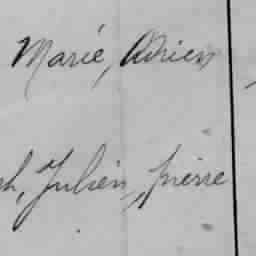 Marie, Adrien
h, Julien, pierre